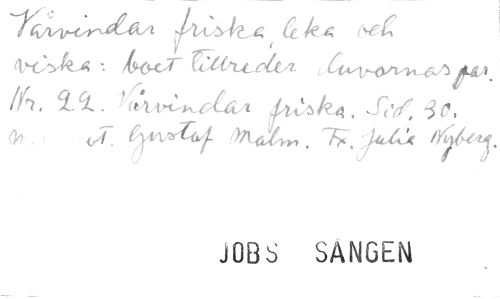 Vårvindar friska, leka och
viska: boet tillreder duvornas par.
Nr. 22. Vårvindar friska. Sid. 30.
Gustaf Malm. Tx. Julia Nyberg.
JOBS SÅNGEN